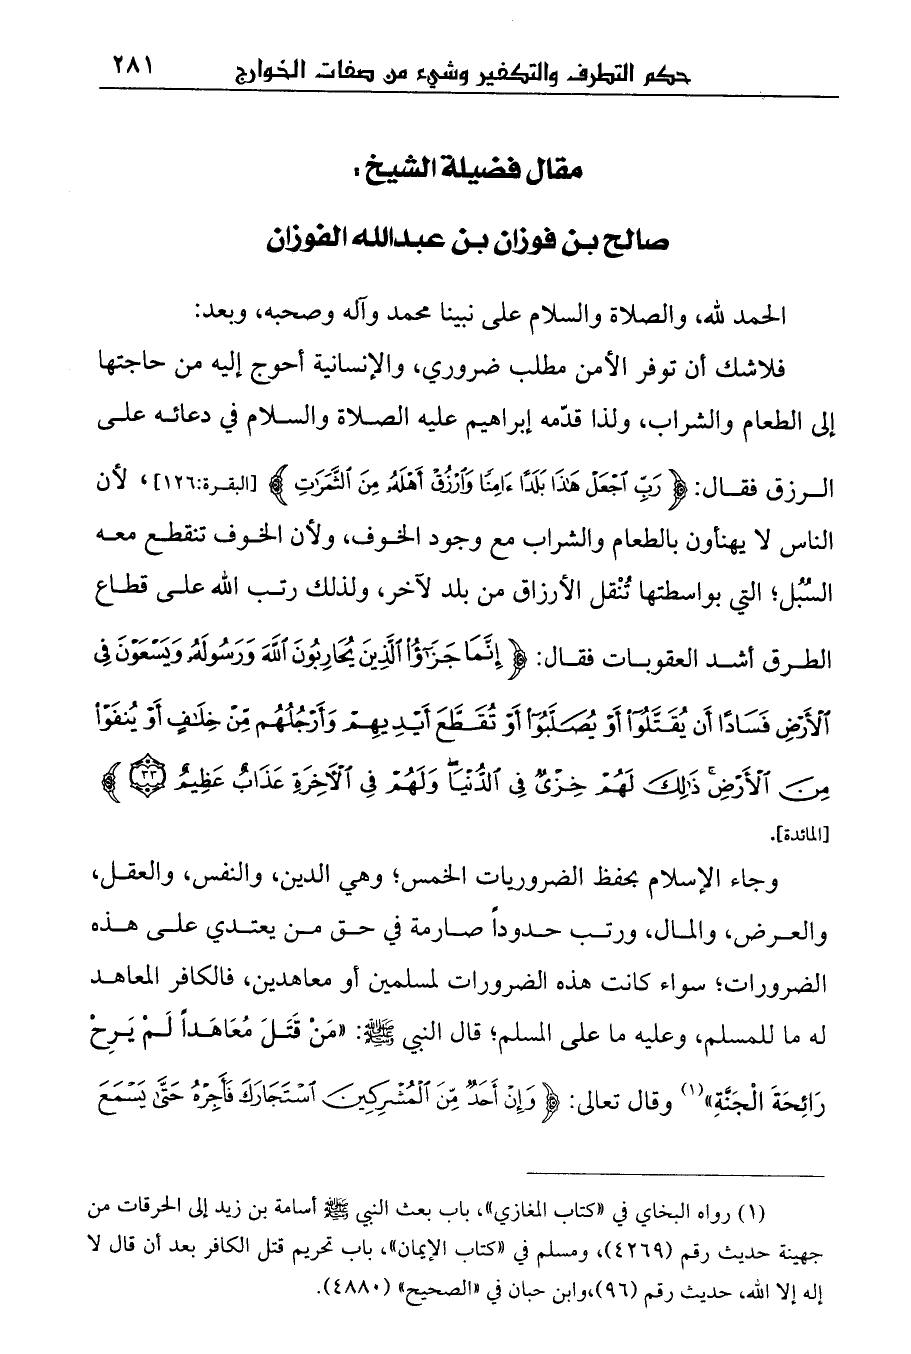 حكم التطرف والتكفير وشيء من صفات الخوارج ٢٨١
مقال فضيلة الشيخ:
صالح بن فوزان بن عبدالله الفوزان
الحمد لله، والصلاة والسلام على نبينا محمد وآله وصحبه، وبعد:
فلاشك أن توفر الأمن مطلب ضروري، والإنسانية أحوج إليه من حاجتها
إلى الطعام والشراب، ولذا قدّمه إبراهيم عليه الصلاة والسلام في دعائه على
الرزق فقال: ﴿ رَبِّ ٱجْعَلْ هَٰذَا بَلَدًا ءَامِنًا وَٱرْزُقْ أَهْلَهُۥ مِنَ ٱلثَّمَرَٰتِ ﴾ [البقرة:١٢٦]، لأن
الناس لا يهنأون بالطعام والشراب مع وجود الخوف، ولأن الخوف تنقطع معه
السُّبُل؛ التي بواسطتها تُنْقل الأرزاق من بلد لآخر، ولذلك رتب الله على قطاع
الطرق أشد العقوبات فقال: ﴿ إِنَّمَا جَزَٰٓؤُا۟ ٱلَّذِينَ يُحَارِبُونَ ٱللَّهَ وَرَسُولَهُۥ وَيَسْعَوْنَ فِى
ٱلْأَرْضِ فَسَادًا أَن يُقَتَّلُوٓا۟ أَوْ يُصَلَّبُوٓا۟ أَوْ تُقَطَّعَ أَيْدِيهِمْ وَأَرْجُلُهُم مِّنْ خِلَٰفٍ أَوْ يُنفَوْا۟
مِنَ ٱلْأَرْضِ ۚ ذَٰلِكَ لَهُمْ خِزْىٌ فِى ٱلدُّنْيَا ۖ وَلَهُمْ فِى ٱلْءَاخِرَةِ عَذَابٌ عَظِيمٌ ٣٣ ﴾
[المائدة].
وجاء الإسلام بحفظ الضروريات الخمس؛ وهي الدين، والنفس، والعقل،
والعرض، والمال، ورتب حدوداً صارمة في حق من يعتدي على هذه
الضرورات؛ سواء كانت هذه الضرورات لمسلمين أو معاهدين، فالكافر المعاهد
له ما للمسلم، وعليه ما على المسلم؛ قال النبي ﷺ: «مَنْ قَتَلَ مُعَاهَداً لَمْ يَرِحْ
رَائِحَةَ الْجَنَّةِ»(١) وقال تعالى: ﴿ وَإِنْ أَحَدٌ مِّنَ ٱلْمُشْرِكِينَ ٱسْتَجَارَكَ فَأَجِرْهُ حَتَّىٰ يَسْمَعَ
(١) رواه البخاي في «كتاب المغازي»، باب بعث النبي ﷺ أسامة بن زيد إلى الحرقات من
جهينة حديث رقم (٤٢٦٩)، ومسلم في «كتاب الإيمان»، باب تحريم قتل الكافر بعد أن قال لا
إله إلا الله، حديث رقم (٩٦)،وابن حبان في «الصحيح» (٤٨٨٠).